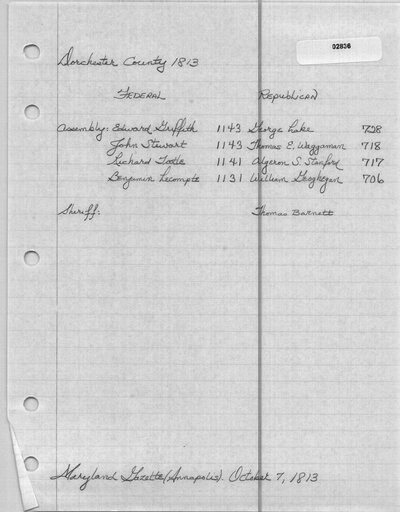 02836
Dorchester County 1813
FEDERAL REPUBLICAN
Assembly: Edward Griffith 1143 George Lake 728
John Stewart 1143 Thomas E. Waggaman 718
Richard Tootle 1141 Algeron S. Stanford 717
Benjamin Lecompte 1131 William Geoghegan 706
Sheriff: Thomas Barnett
Maryland Gazette (Annapolis). October 7, 1813